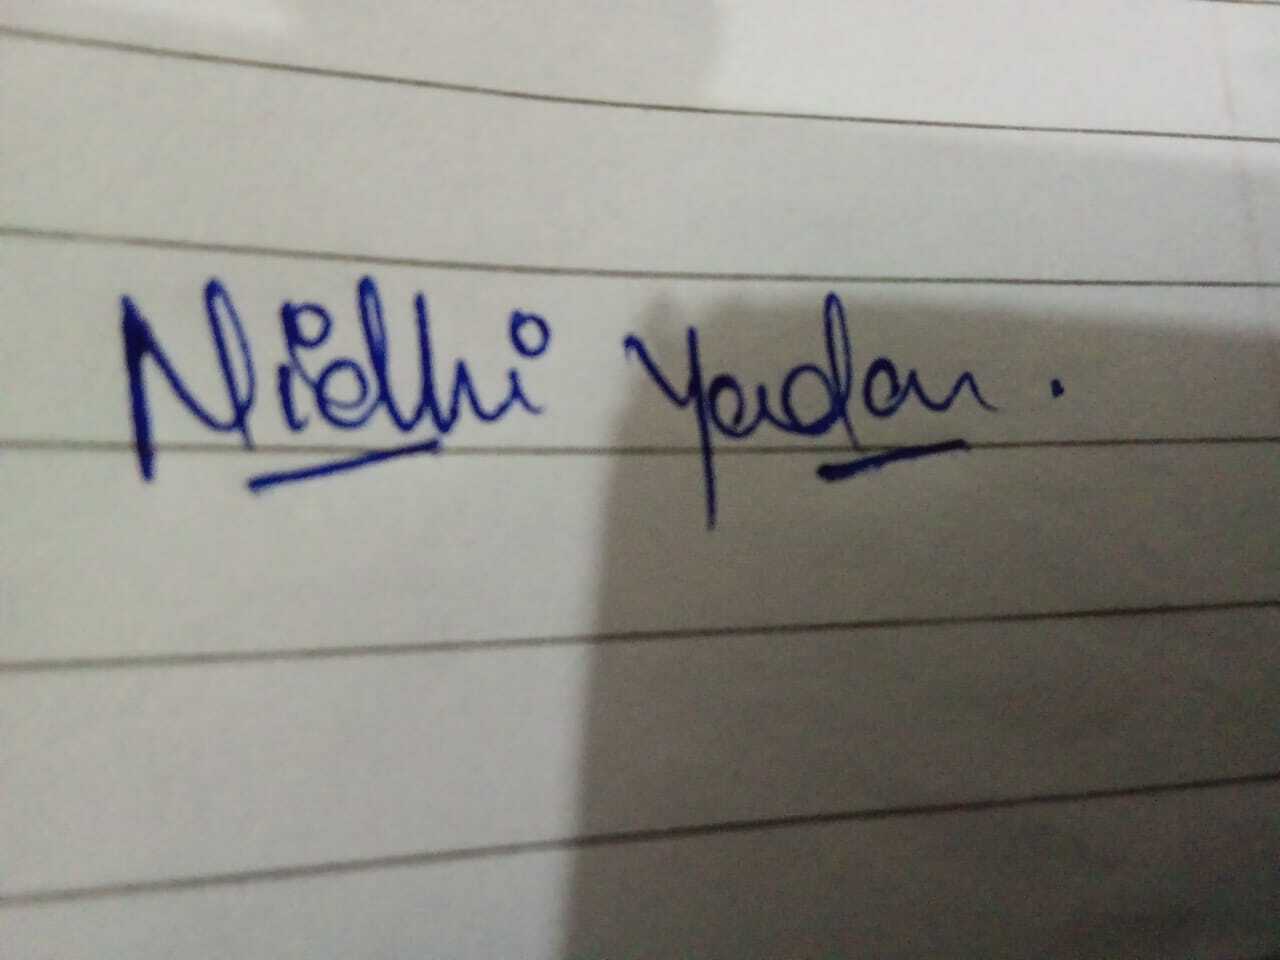 Nidhi Yadav.